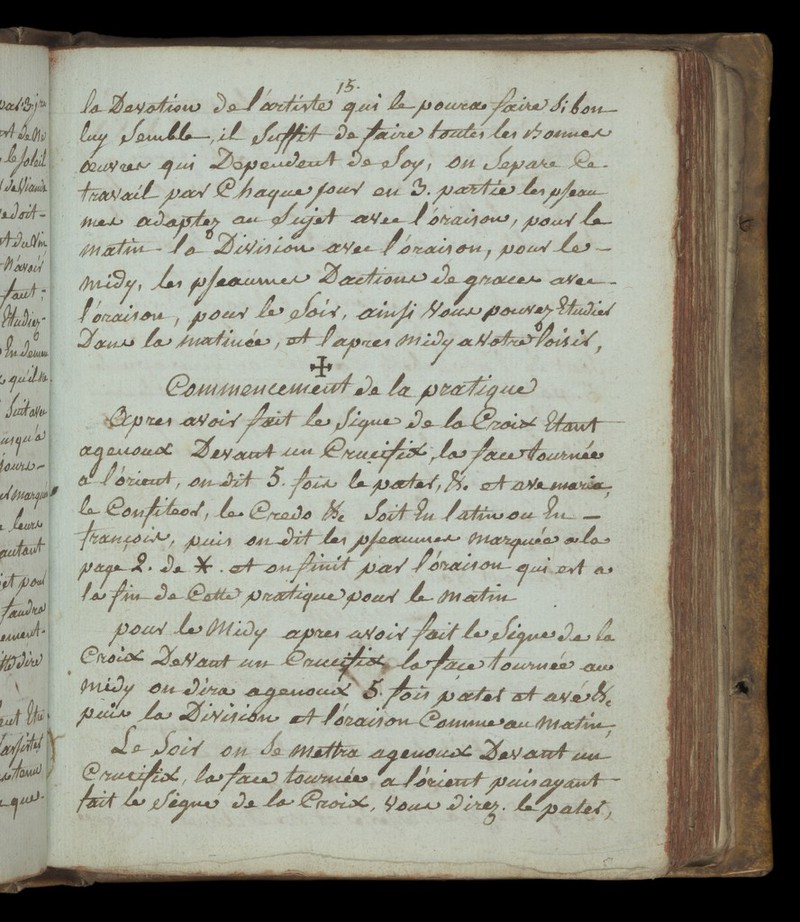 15.
la Devotion de l'artiste qui le poura faire si bon
luy semble, il suffit de faire toutes les bonnes
œuvres qui Dependent de soy, on separe Ce
travail par Chaque jour en 3. partie les pseau
mes adaptez au sujet avec l'oraison, pour le
matin la Division avec l'oraison, pour le
midy, les pseaumes D'actions de graces avec
l'oraison, pour le soir, ainsi Vous pouvez Etudier
Dans la matinée, et l'apres midy a Votre loisir,
Commencement de la pratique
Apres avoir fait le signe de la Croix Etant
agenoux Devant un Crucifix, la face tournée
a l'orient, on dit 5. fois le pater, &c et ave maria,
le Confiteor, le Credo &c soit En latin ou En
françois, puis on dit les pseaumes marquée a la
page 2. de X. et on finit par l'oraison qui est a
la fin de Cette pratique pour le matin
pour le Midy apres avoir fait le signe de la
Croix Devant un Crucifix la face tournée au
midy on dira agenoux 5. fois pater et avé &c
puis la Division et l'oraison Comme au matin,
Le soir on se mettra agenoux Devant un
Crucifix, la face tournée a l'orient puis ayant
fait le signe de la Croix, Vous direz. le pater,
le soleil
de Viande
doit
et du Vin
N'avoir
faut
Etudiez
En
qu'il
jusqu'a
jours
marqué
leurs
autant
et pour
faudra
dire
que